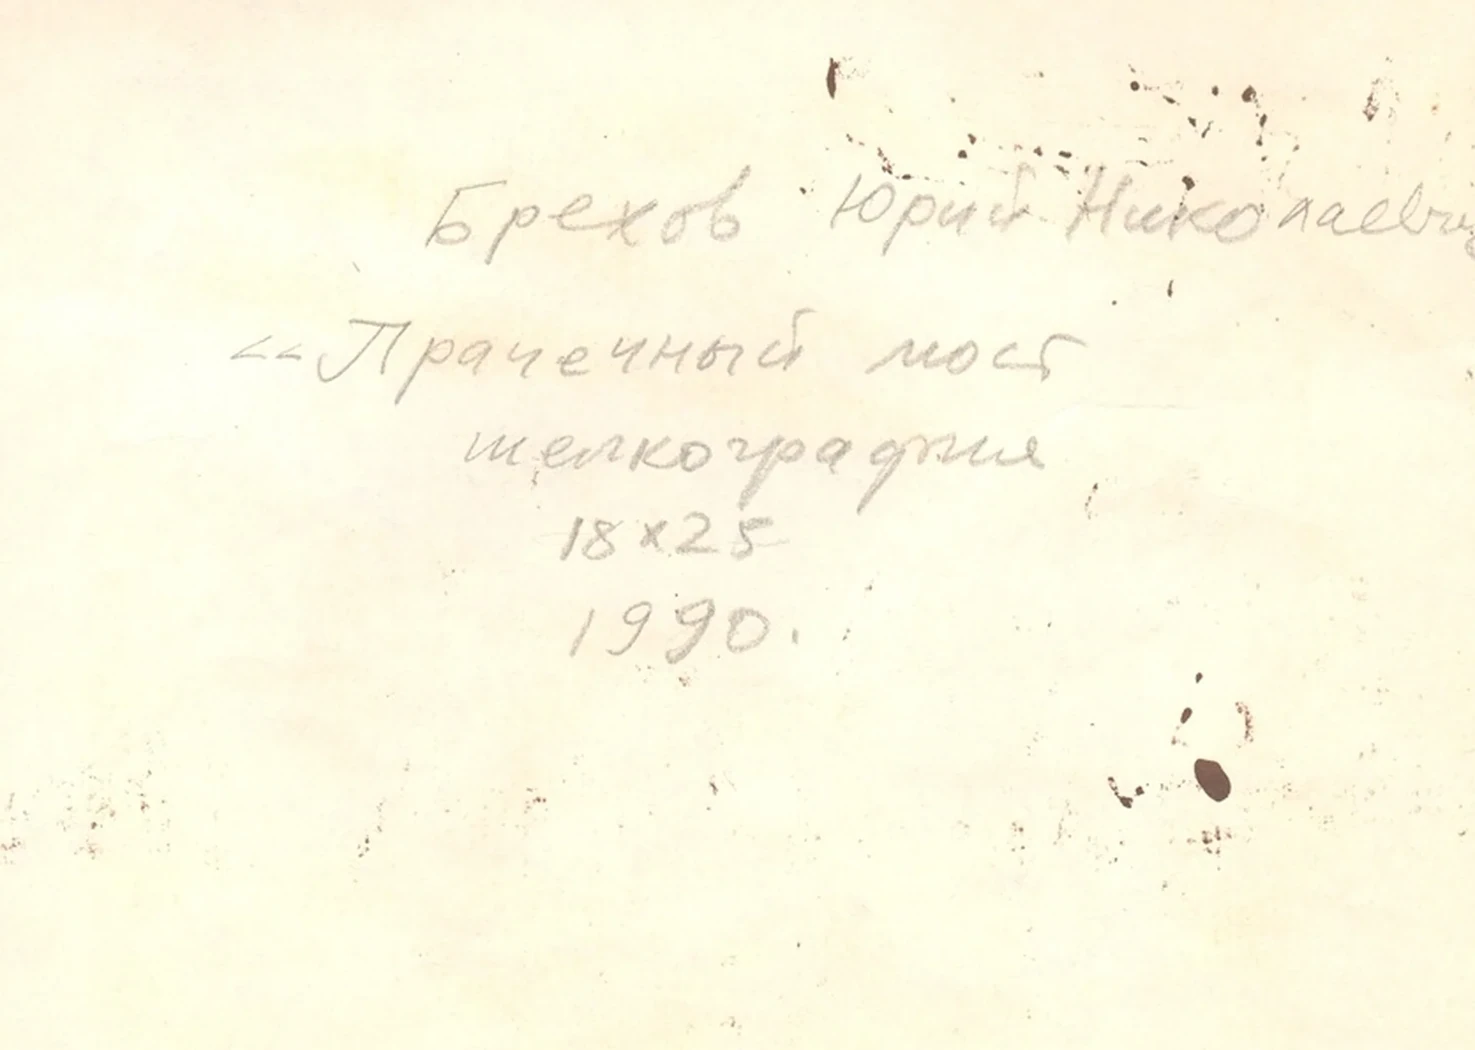 Брехов Юрий Николаевич
«Прачечный мост
шелкография
18х25
1990.